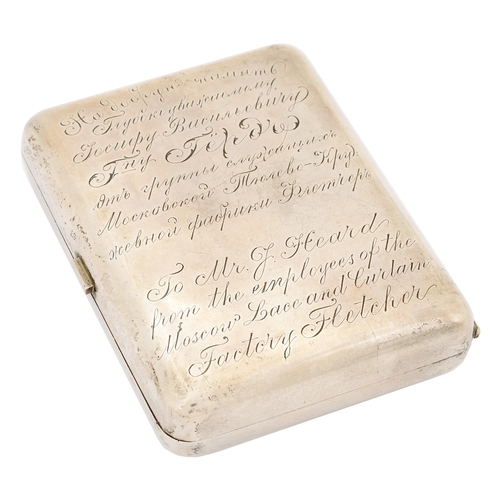 На добрую память
Глубокоуважаемому
Іосифу Васильевичу
Г-ну Гёрдъ
отъ группы служащихъ
Московской Тюлево-Кру-
жевной фабрики Флетчеръ
To Mr. J. Heard
from the employees of the
Moscow Lace and Curtain
Factory Fletcher